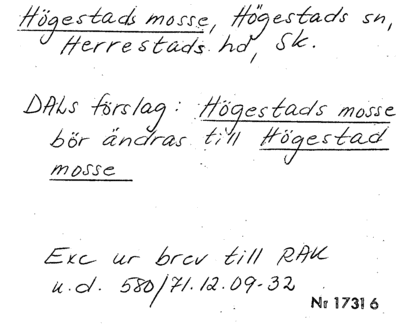 Högestads mosse, Högestads sn,
Herrestads hd, Sk.
DALs förslag: Högestads mosse
bör ändras till Högestad
mosse
Exc ur brev till RAK
u.d. 580/71.12.09-32
Nr 17316